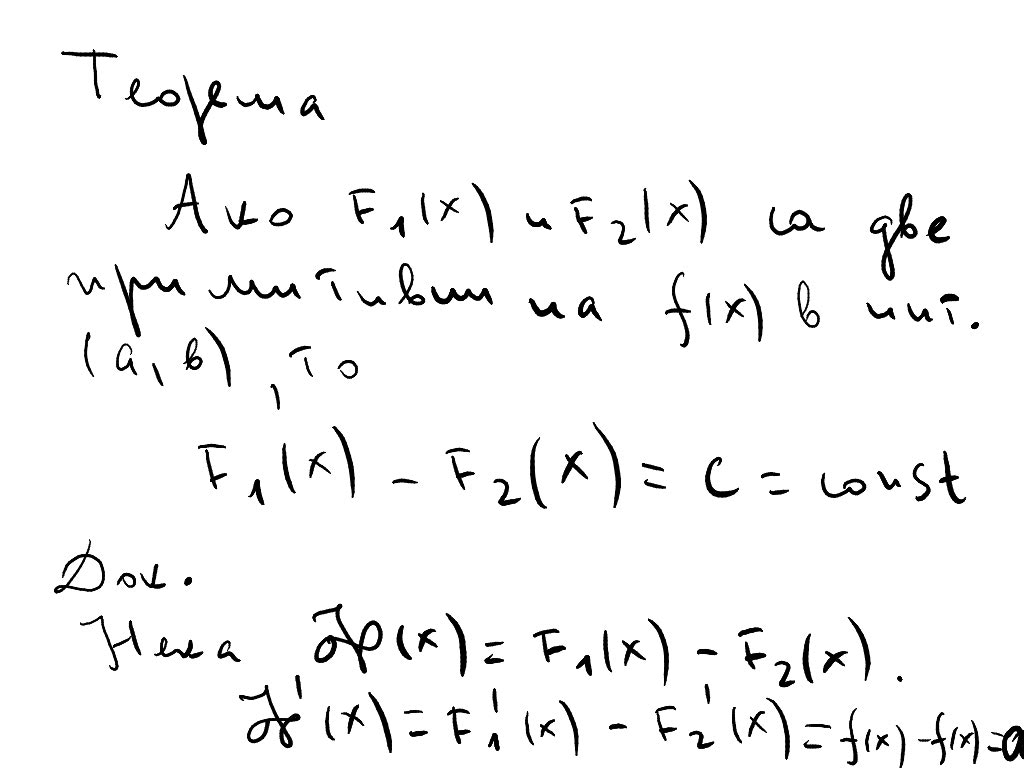 Теорема
Ако F₁(x) и F₂(x) са две
примитивни на f(x) в инт.
(a, b), то
F₁(x) - F₂(x) = C = const
Док.
Нека ℋ(x) = F₁(x) - F₂(x).
ℋ'(x) = F₁'(x) - F₂'(x) = f(x) - f(x) = 0